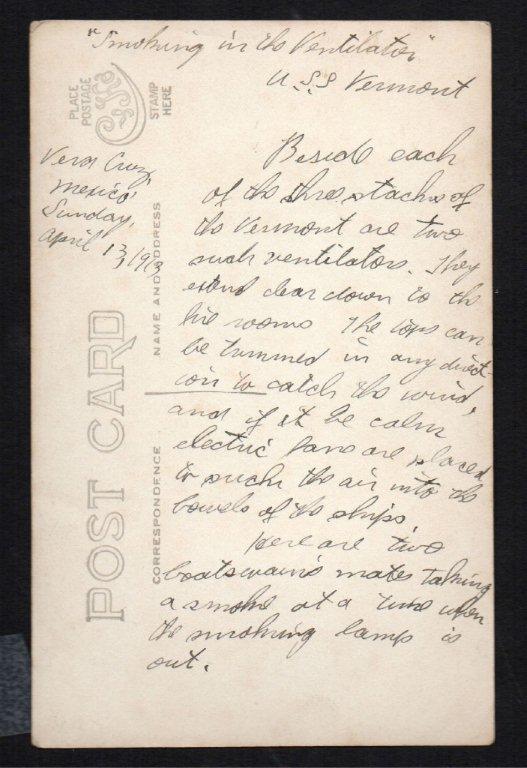 "Smoking in the Ventilator"
U.S.S Vermont
PLACE
POSTAGE
STAMP
HERE
Vera Cruz
Mexico
Sunday,
April 13, 1913
Beside each
of the three stacks of
the Vermont are two
such ventilators. They
extend clear down to the
fire rooms The tops can
be turned in any direct-
ion to catch the wind,
and if it be calm
electric fans are placed
to suck the air into the
bowels of the ships.
Here are two
boatswain's mates taking
a smoke at a time when
the smoking lamp is
out.
POST CARD
NAME AND ADDRESS
CORRESPONDENCE